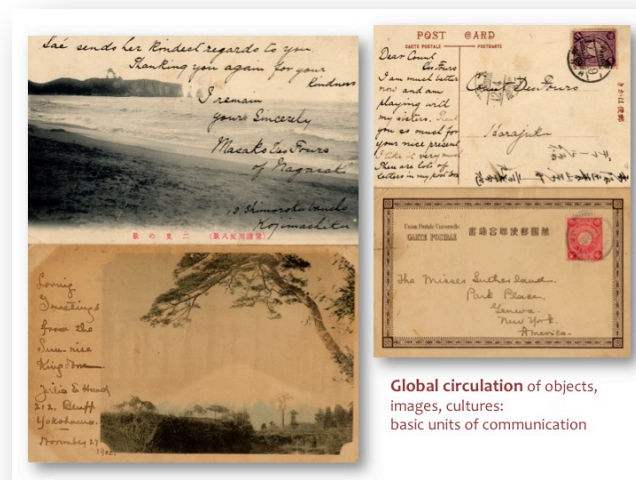 Saé sends her Kindest regards to you
Thanking you again for your
Kindness
I remain
yours Sincerely
Masako Des Fours
of Nagasaki
Kojimachiku
二見の景
Loving
Greetings
from the
Sun-rise
Kingdom
Julia E Hand
212. Bluff
Yokohama.
November 27
POST CARD
CARTE POSTALE POSTKARTE
Dear Count
Des Fours
I am much better
now and am
playing with
my sisters.
you so much for
your nice present
I like it very much
There are lots of
letters in my post box
Count Des Fours
Harajuku
きかは便郵
Union Postale Universelle.
CARTE POSTALE
萬國郵便聯合端書
The Misses Sutherland.
Park Place.
Geneva.
New York.
America.
Global circulation of objects,
images, cultures:
basic units of communication